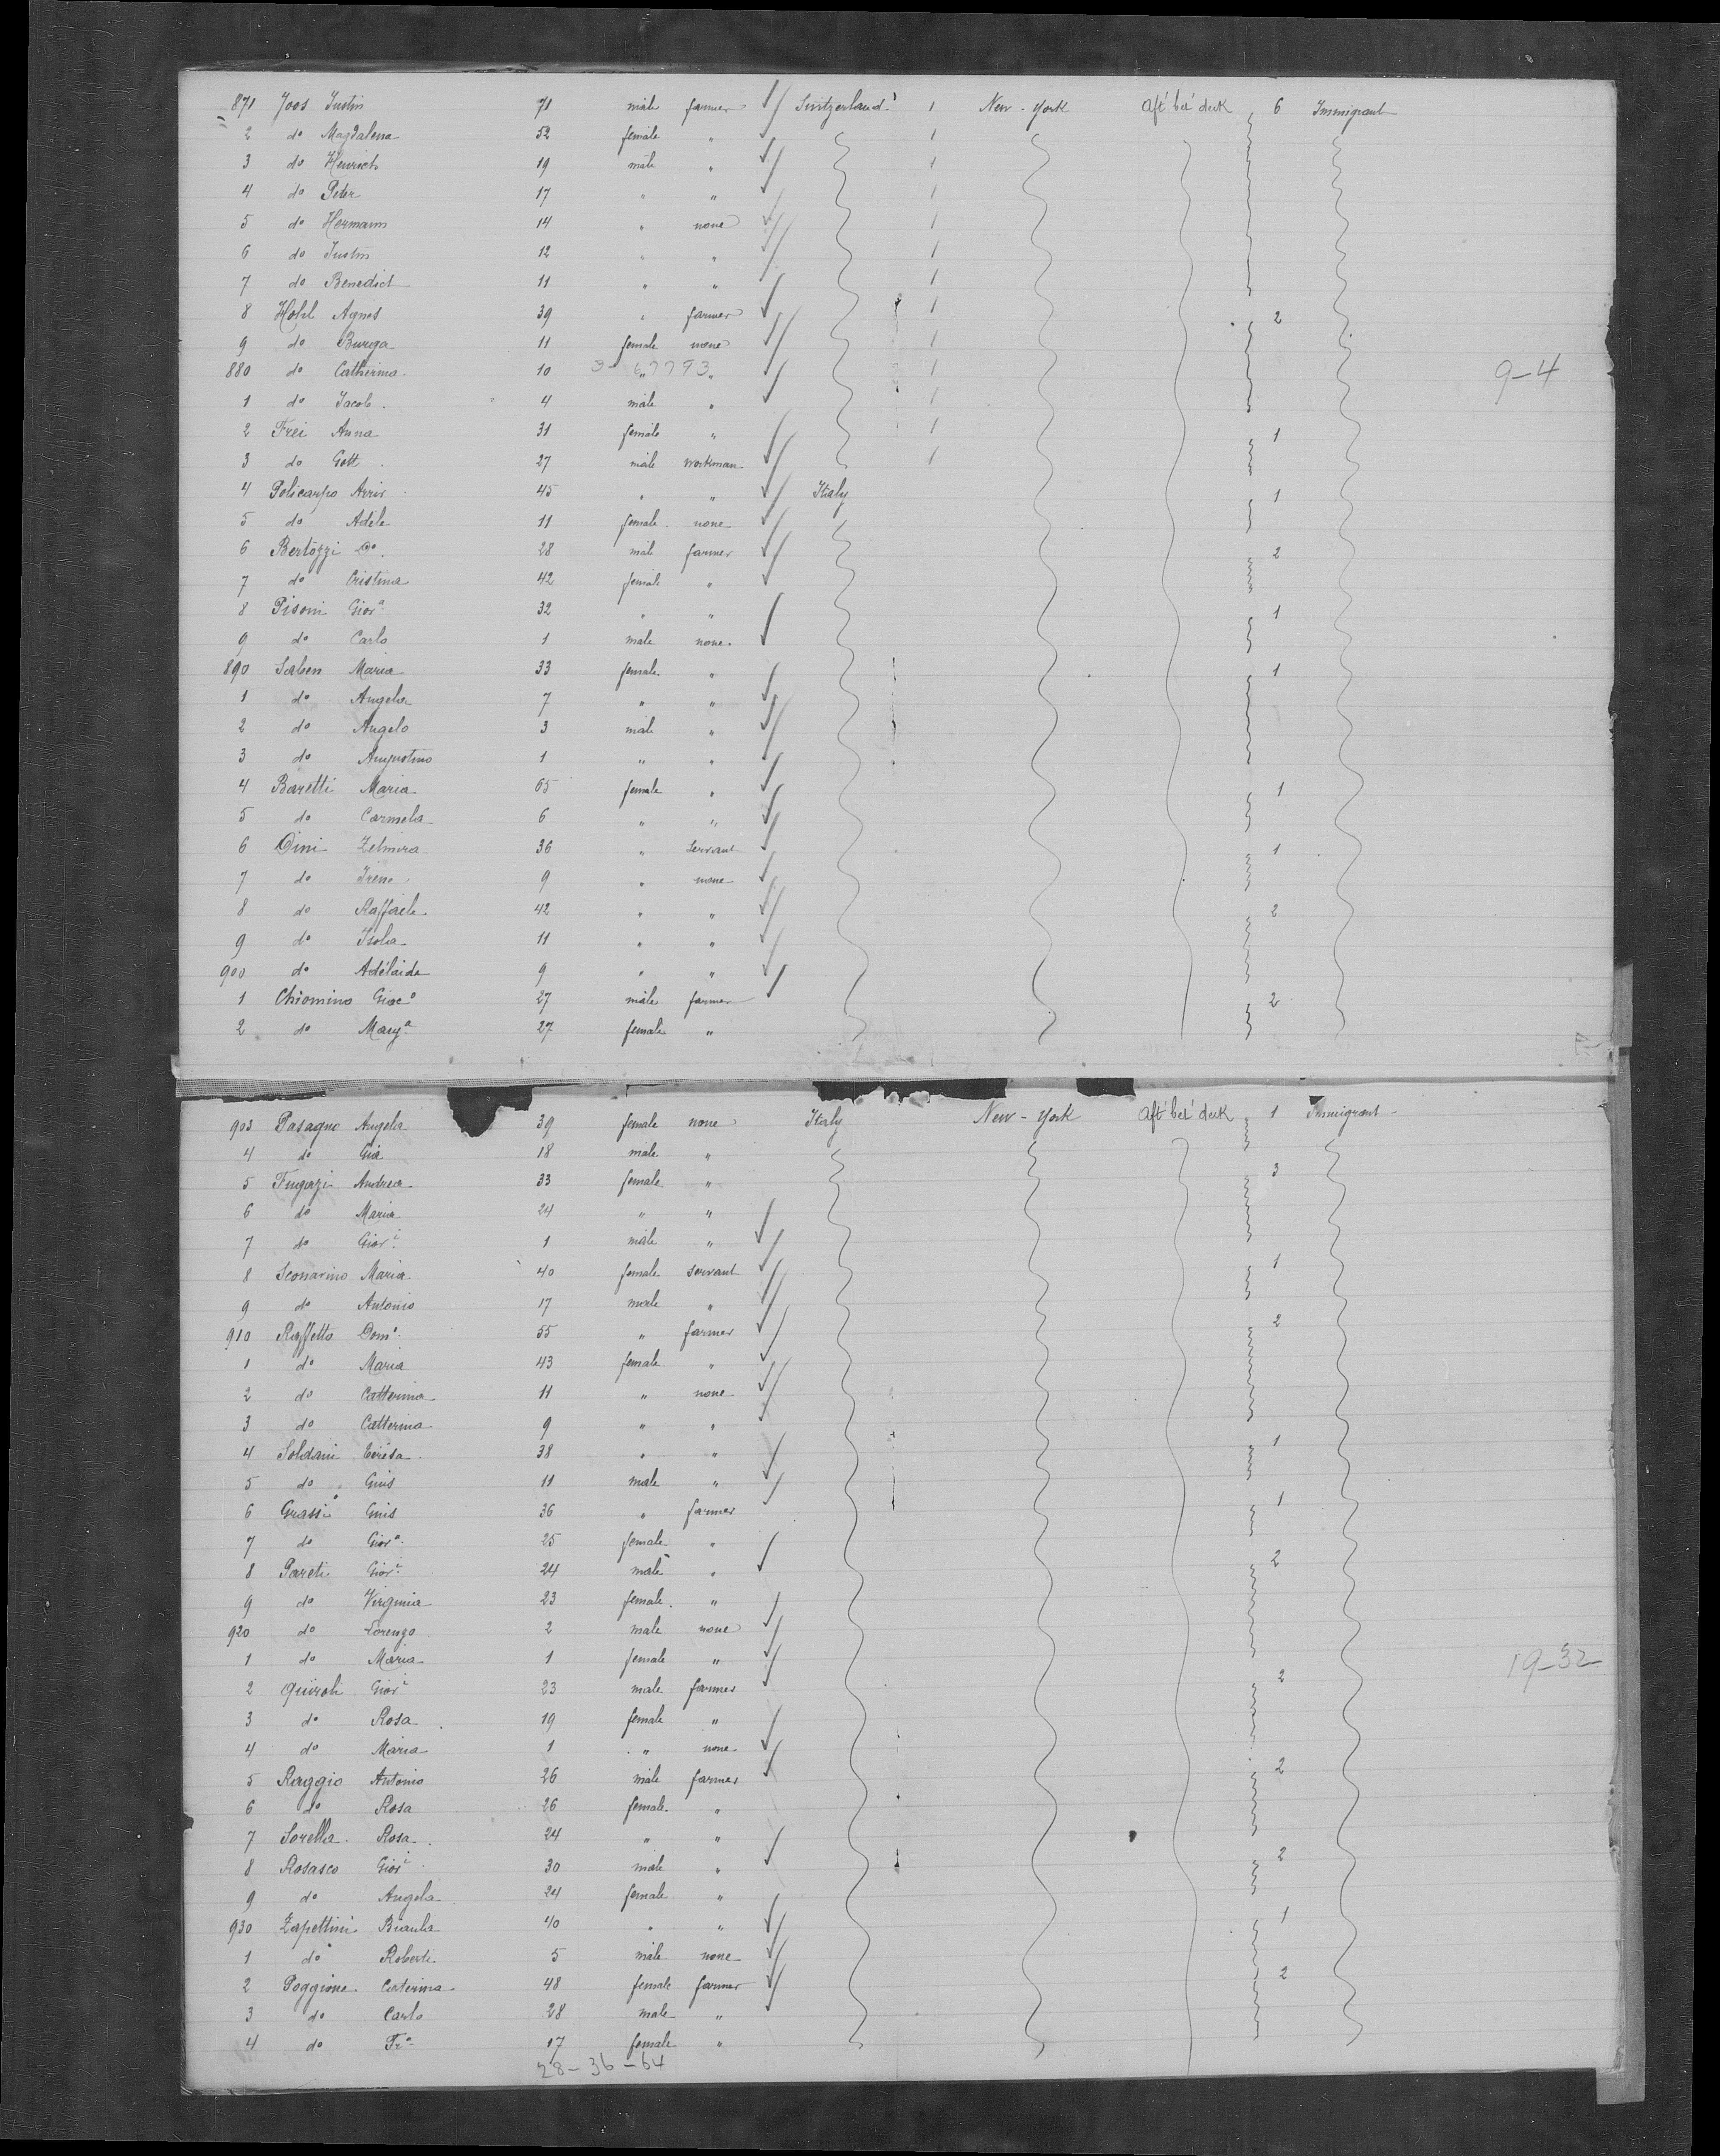 871 Joos Justin 71 male farmer Switzerland 1 New-York Aft bet' deck 6 Immigrant
2 do Magdalena 52 female " 1
3 do Heinrich 19 male " 1
4 do Peter 17 " " 1
5 do Hermann 14 " none 1
6 do Justin 12 " " 1
7 do Benedict 11 " " 1
8 Hohl Agnes 39 " farmer 1 2
9 do Burga 11 female none 1
880 do Catherina 10 " " 1
9-4
1 do Jacob 4 male " 1
2 Frei Anna 31 female " 1 1
3 do Gott 27 male workman 1
4 Policarpo 45 " " Italy 1
5 do Adele 11 female none
6 Bertozzi Do. 28 male farmer 2
7 do Cristina 42 female "
8 Pisoni Giova 32 " " 1
9 do Carlo 1 male none
890 Saben Maria 33 female " 1
1 do Angela 7 " "
2 do Angelo 3 male "
3 do Augustino 1 " "
4 Baretti Maria 65 female " 1
5 do Carmela 6 " "
6 Dini Zelmira 36 " Servant 1
7 do Irene 9 " none
8 do Raffaele 42 " " 2
9 do Isola 11 " "
900 do Adélaide 9 " "
1 Chiomino Giaco 27 male farmer 2
2 do Marga 27 female "
903 Pasagno Angela 39 female none Italy New-York Aft bet' deck 1 Immigrant
4 do Gia 18 male "
5 Fugazi Andrea 33 female " 3
6 do Maria 24 " "
7 do Giovi 1 male "
8 Sconavino Maria 40 female servant 1
9 do Antonio 17 male "
910 Raffetto Domo 55 " farmer 2
1 do Maria 43 female "
2 do Catterina 11 " none
3 do Catterina 9 " "
4 Soldani Teresa 38 " " 1
5 do Gius 11 male "
6 Grassi Gius 36 " farmer 1
7 do Giova 25 female "
8 Pareti Giovi 24 male " 2
9 do Virginia 23 female "
920 do Lorenzo 2 male none
1 do Maria 1 female "
19-32
2 Quiroli Giovi 23 male farmer 2
3 do Rosa 19 female "
4 do Maria 1 " none
5 Raggio Antonio 26 male farmer 2
6 do Rosa 26 female "
7 Sorella Rosa 24 " "
8 Rosasco Giovi 30 male " 2
9 do Angela 24 female "
930 Zapettini 40 " " 1
1 do Roberti 5 male none
2 Poggione Caterina 48 female farmer 2
3 do Carlo 28 male "
4 do Fra 17 female "
28-36-64